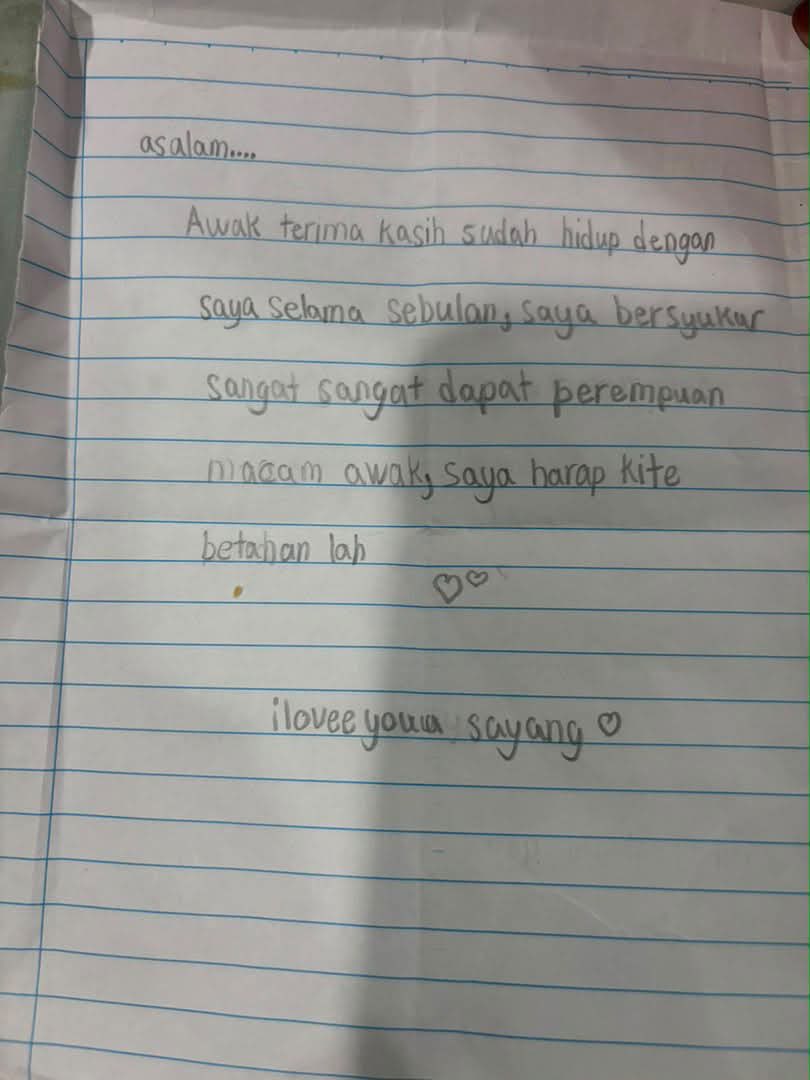 asalam....
Awak terima kasih sudah hidup dengan
saya selama sebulan, saya bersyukur
sangat sangat dapat perempuan
macam awak, saya harap kite
betahan lah
iloveeyouu sayang